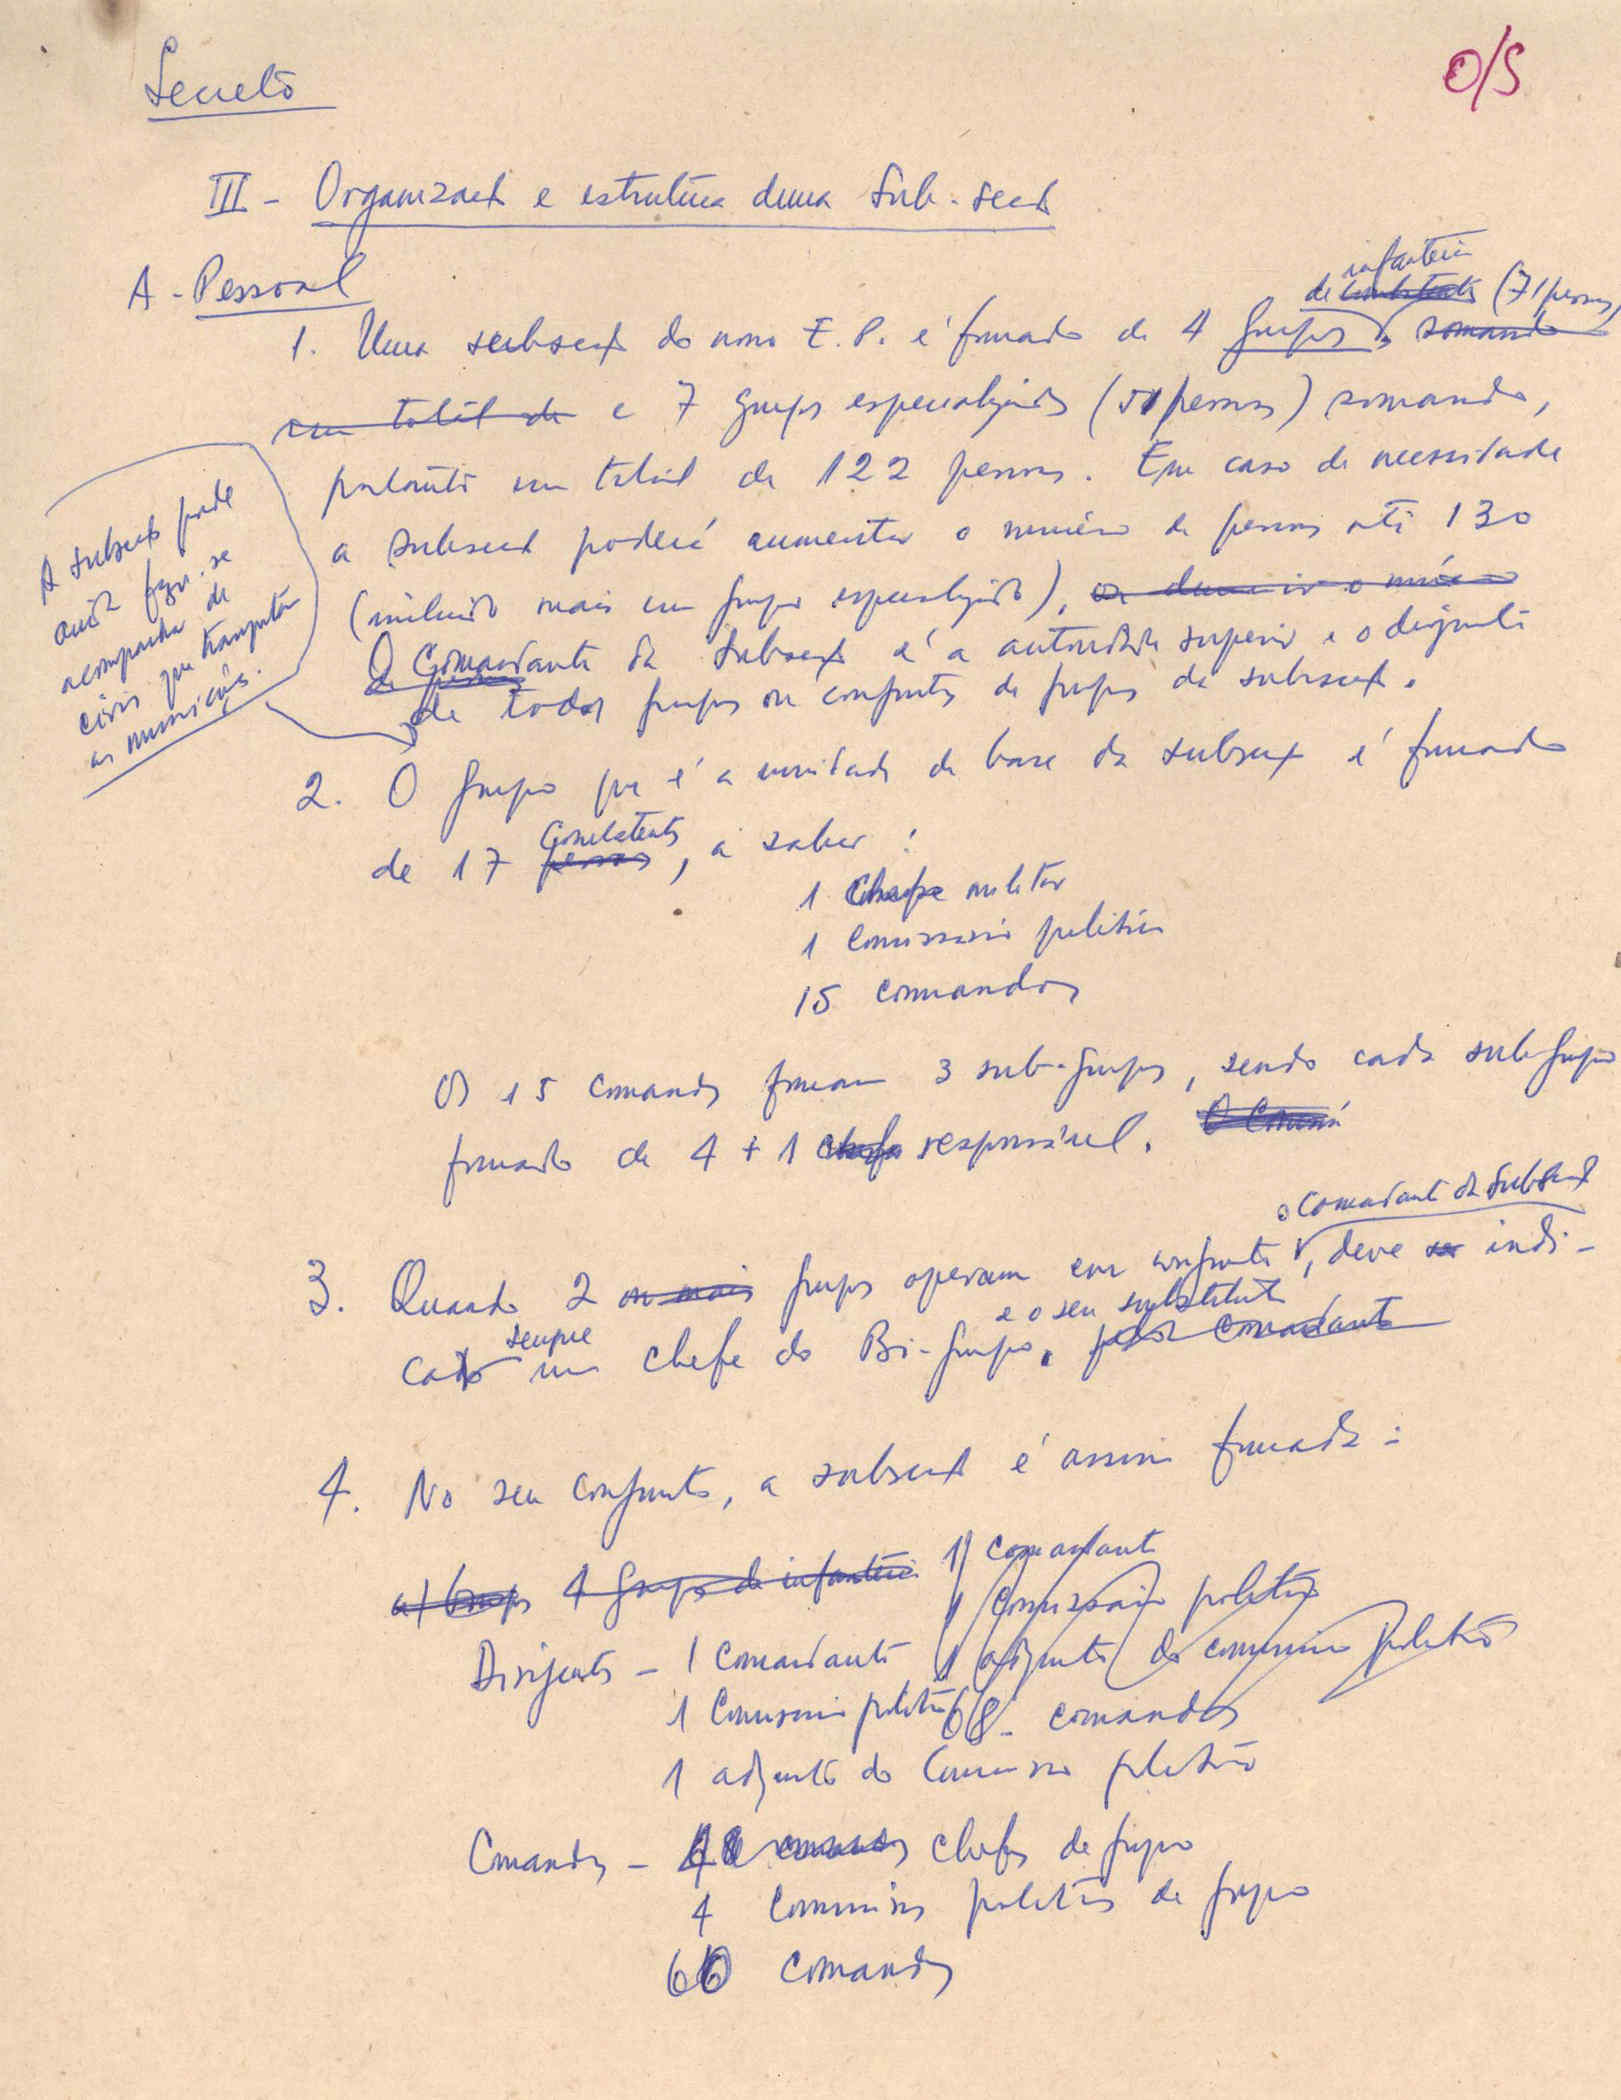 Secreto
O/S
III - Organizaçã e estrutura duma Sub-secçã
A - Pessoal
de infantaria (71 pessoas)
1. Uma subsecçã do nosso E.P. é formado de 4 grupos somando
um total de e 7 grupos especializados (51 pessoas) somando,
portanto um total de 122 pessoas. Em caso de necessidade
a subsecçã poderá aumentar o número de pessoas até 130
(incluindo mais um grupo especializado), ou diminuir o número
de pessoas
O Comandante da Subsecçã é a autoridade superior e o dirigente
de todos grupos ou conjuntos de grupos da subsecçã.
A subsecçã pode
ainda fazer-se
acompanhar de
civis que transportam
as munições.
2. O grupo que é a unidade de base da subsecçã é formado
combatentes
de 17 pessoas, a saber:
1 Chefe militar
1 Comissário político
15 comandos
Os 15 comandos formam 3 sub-grupos, sendo cada subgrupo
formado de 4 + 1 chefe responsável. O Comissá
o Comandante da Subsecçã
3. Quando 2 ou mais grupos operam em conjunto, deve ser indi-
sempre e o seu substituto
cado um chefe do Bi-grupo. pelo Comandante
4. No seu conjunto, a subsecçã é assim formada:
a) Grupos 4 grupos de infantaria 1 Comandante
1 Comissário político
Dirigentes - 1 Comandante 1 adjunto do comissário político
1 Comissário político 68 - comandos
1 adjunto do Comissário político
Comandos - 4 comandos chefes de grupo
4 Comissários políticos de grupo
60 comandos